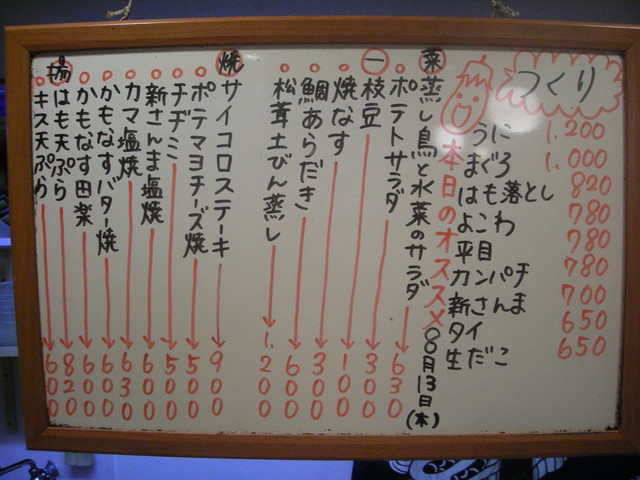 つくり
うに 1,200
まぐろ 1,000
はも落とし 820
よこわ 780
平目 780
カンパチ 780
新さんま 700
タイ 650
生だこ 650
本日のオススメ 8月13日(木)
菜
蒸し鳥と水菜のサラダ 630
ポテトサラダ 300
一
枝豆 100
焼なす 300
鯛あらだき 600
松茸土びん蒸し 1,200
焼
サイコロステーキ 900
ポテマヨチーズ焼 500
チヂミ 500
新さんま塩焼 600
カマ塩焼 630
かもなすバター焼 600
かもなす田楽 600
揚
はも天ぷら 820
キス天ぷら 600